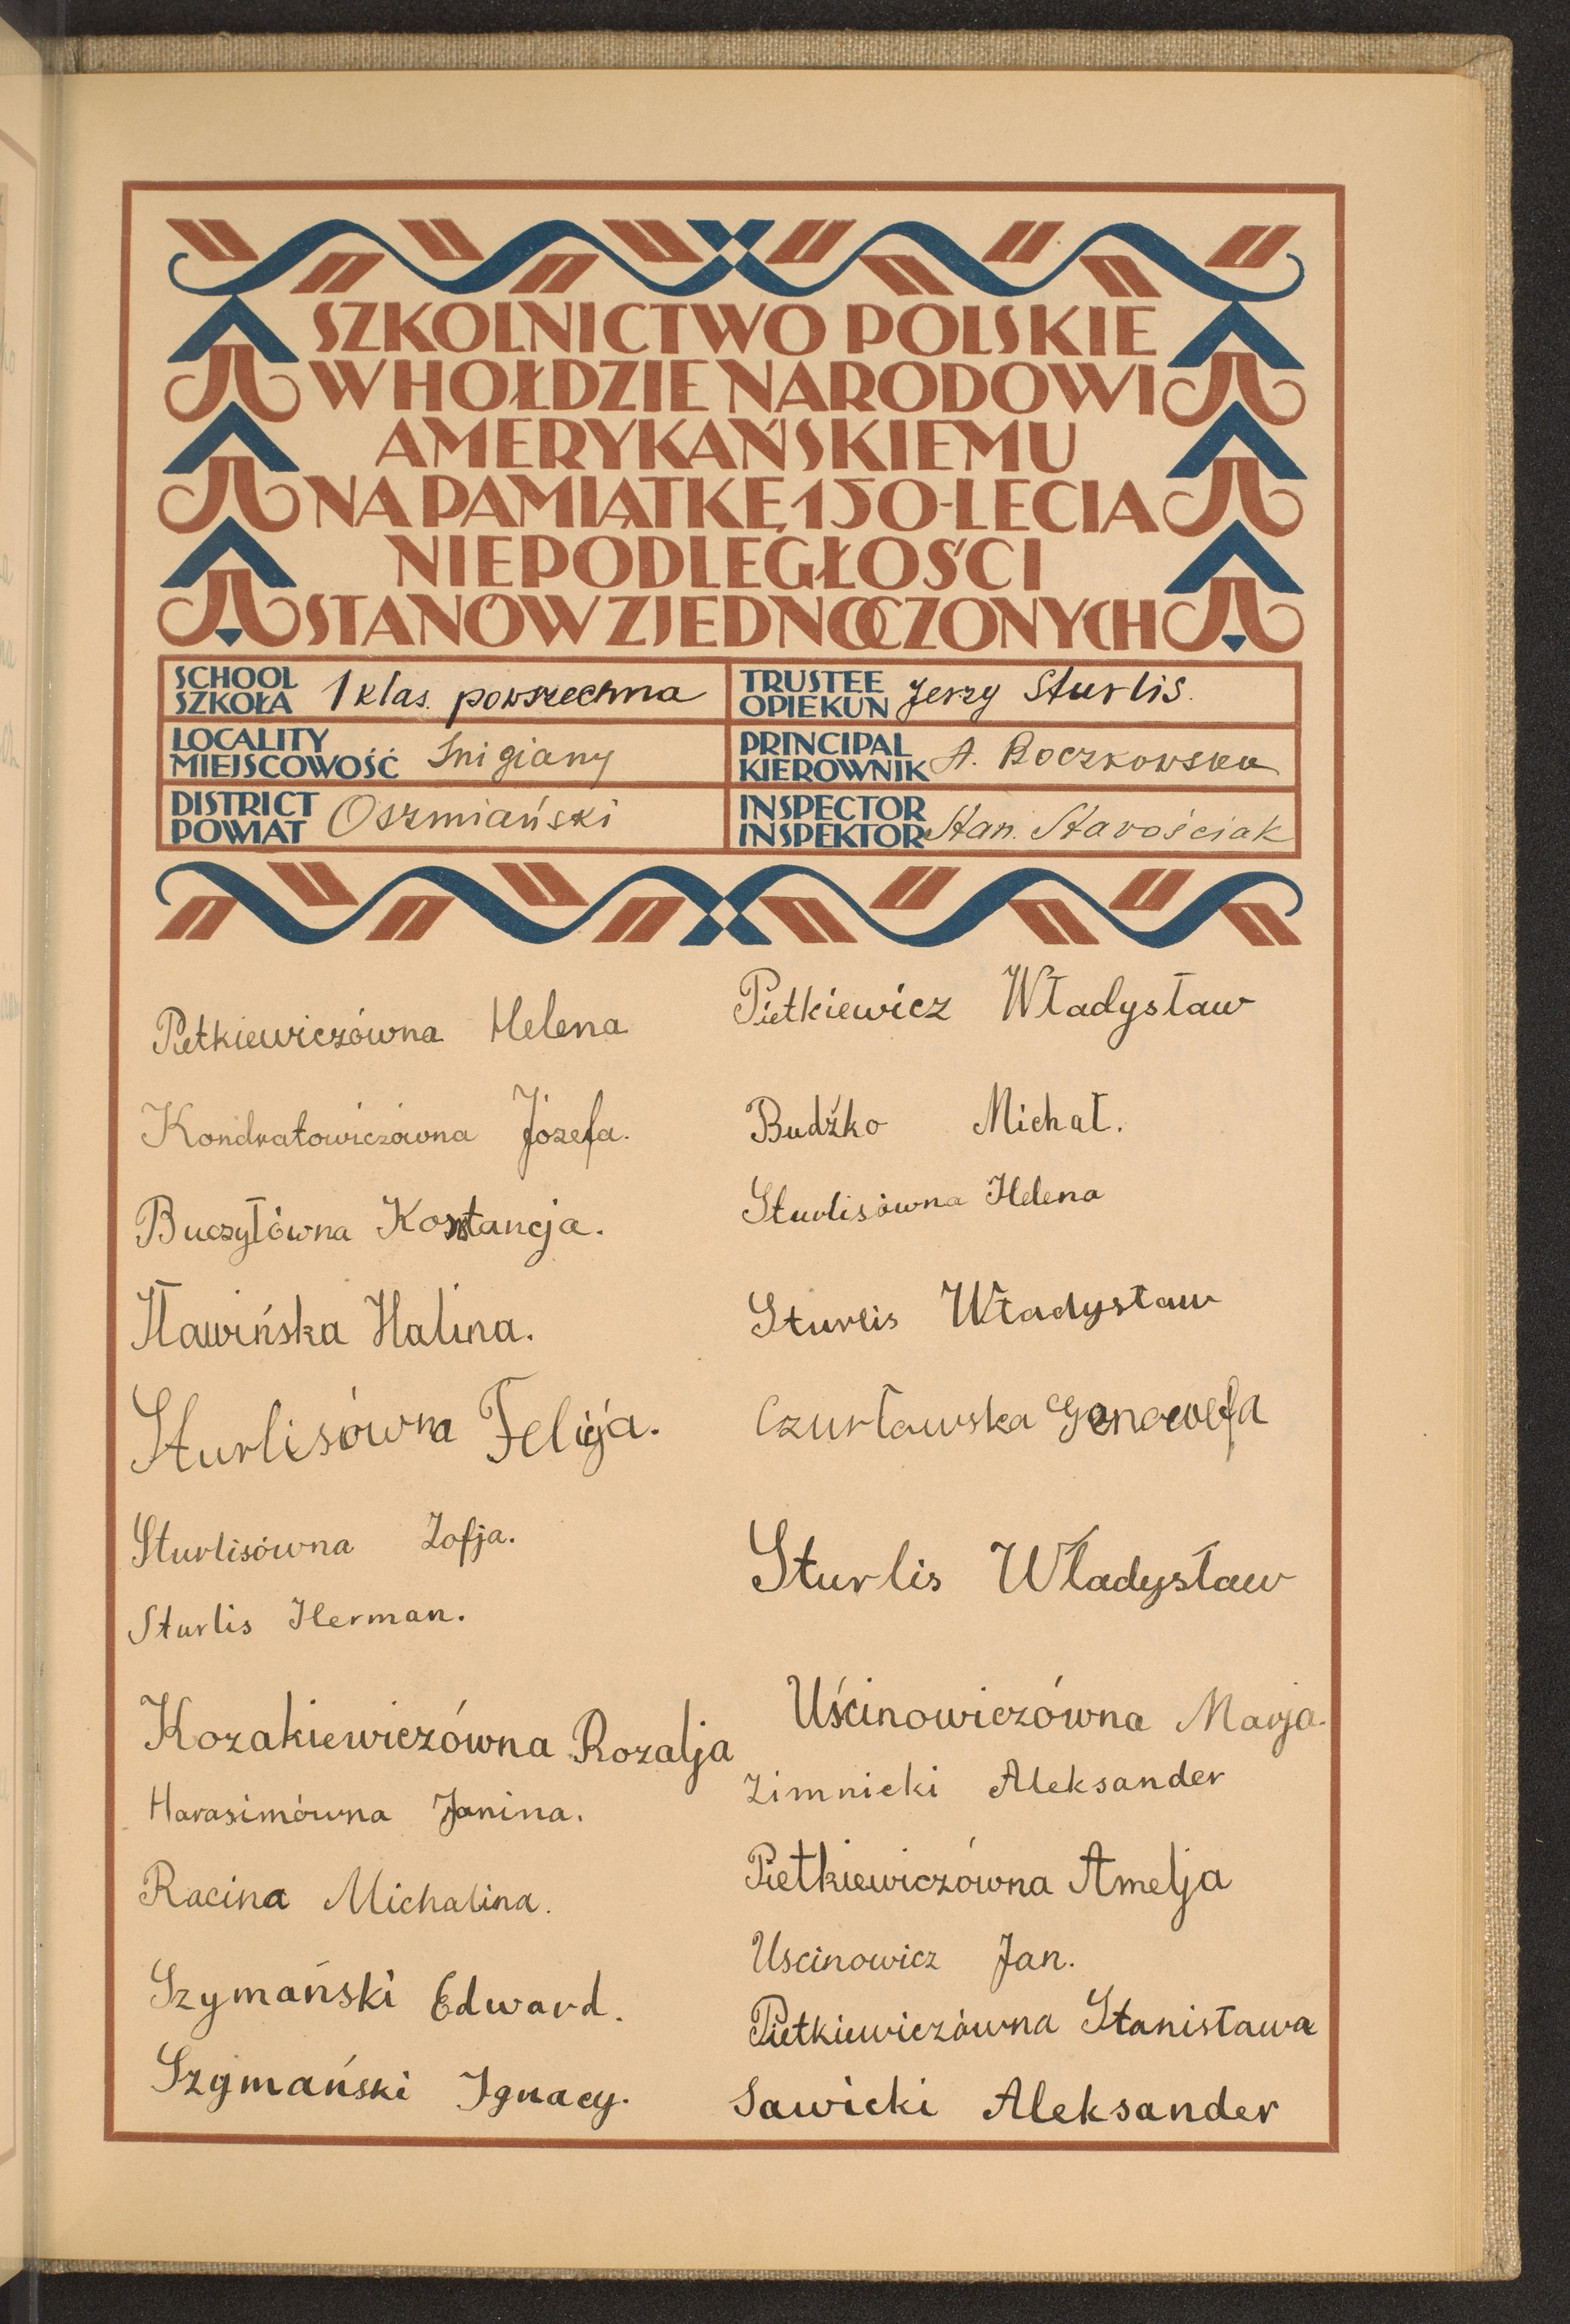 SZKOLNICTWO POLSKIE
W HOŁDZIE NARODOWI
AMERYKAŃSKIEMU
NA PAMIĄTKĘ 150-LECIA
NIEPODLEGŁOŚCI
STANÓW ZJEDNOCZONYCH
SCHOOL
SZKOŁA 1 klas. powszechna
TRUSTEE
OPIEKUN Jerzy Sturlis.
LOCALITY
MIEJSCOWOŚĆ Śnigiany
PRINCIPAL
KIEROWNIK A. Boczkowska
DISTRICT
POWIAT Oszmiański
INSPECTOR
INSPEKTOR Stan. Starościak
Pietkiewiczówna Helena
Kondratowiczówna Józefa.
Buczyłówna Konstancja.
Iławińska Halina.
Sturlisówna Felicja.
Sturlisówna Zofja.
Sturlis Herman.
Kozakiewiczówna Rozalja
Harasimówna Janina.
Racina Michalina.
Szymański Edward.
Szymański Ignacy.
Pietkiewicz Władysław
Budźko Michał.
Sturlisówna Helena
Sturlis Władysław
Czurławska Genowefa
Sturlis Władysław
Uścinowiczówna Marja.
Zimnicki Aleksander
Pietkiewiczówna Amelja
Uscinowicz Jan.
Pietkiewiczówna Stanisława
Sawicki Aleksander